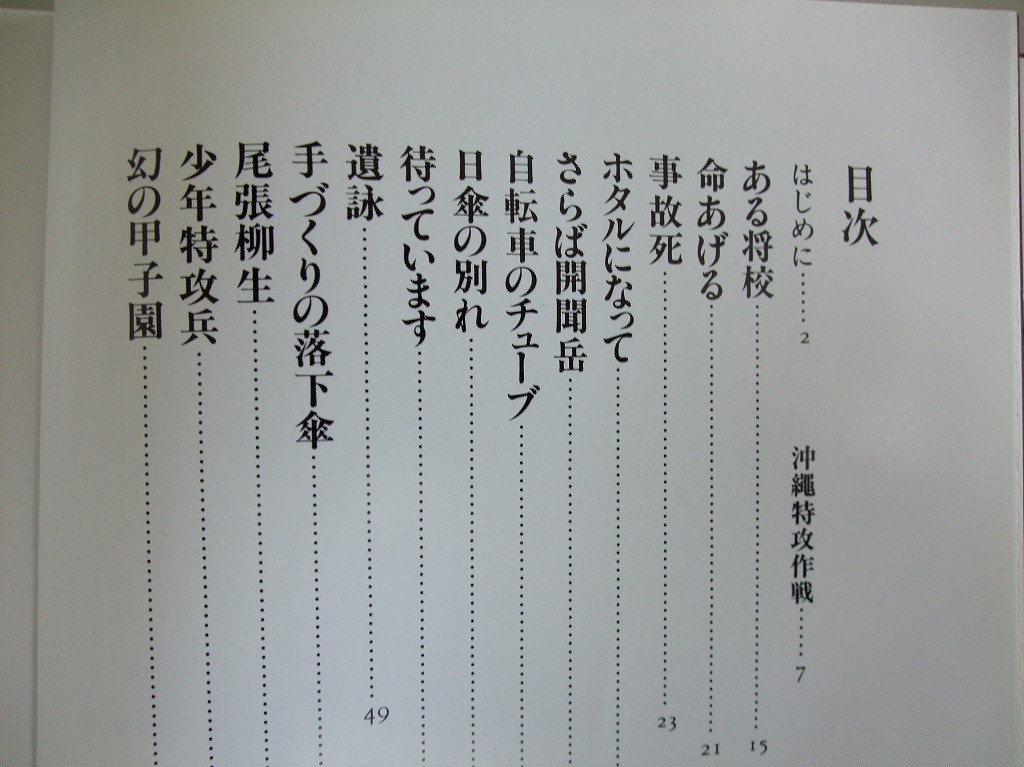 目次
はじめに……2
沖縄特攻作戦……7
ある将校……15
命あげる……21
事故死……23
ホタルになって……
さらば開聞岳……
自転車のチューブ……
日傘の別れ……
待っています……
遺詠……49
手づくりの落下傘……
尾張柳生……
少年特攻兵……
幻の甲子園……